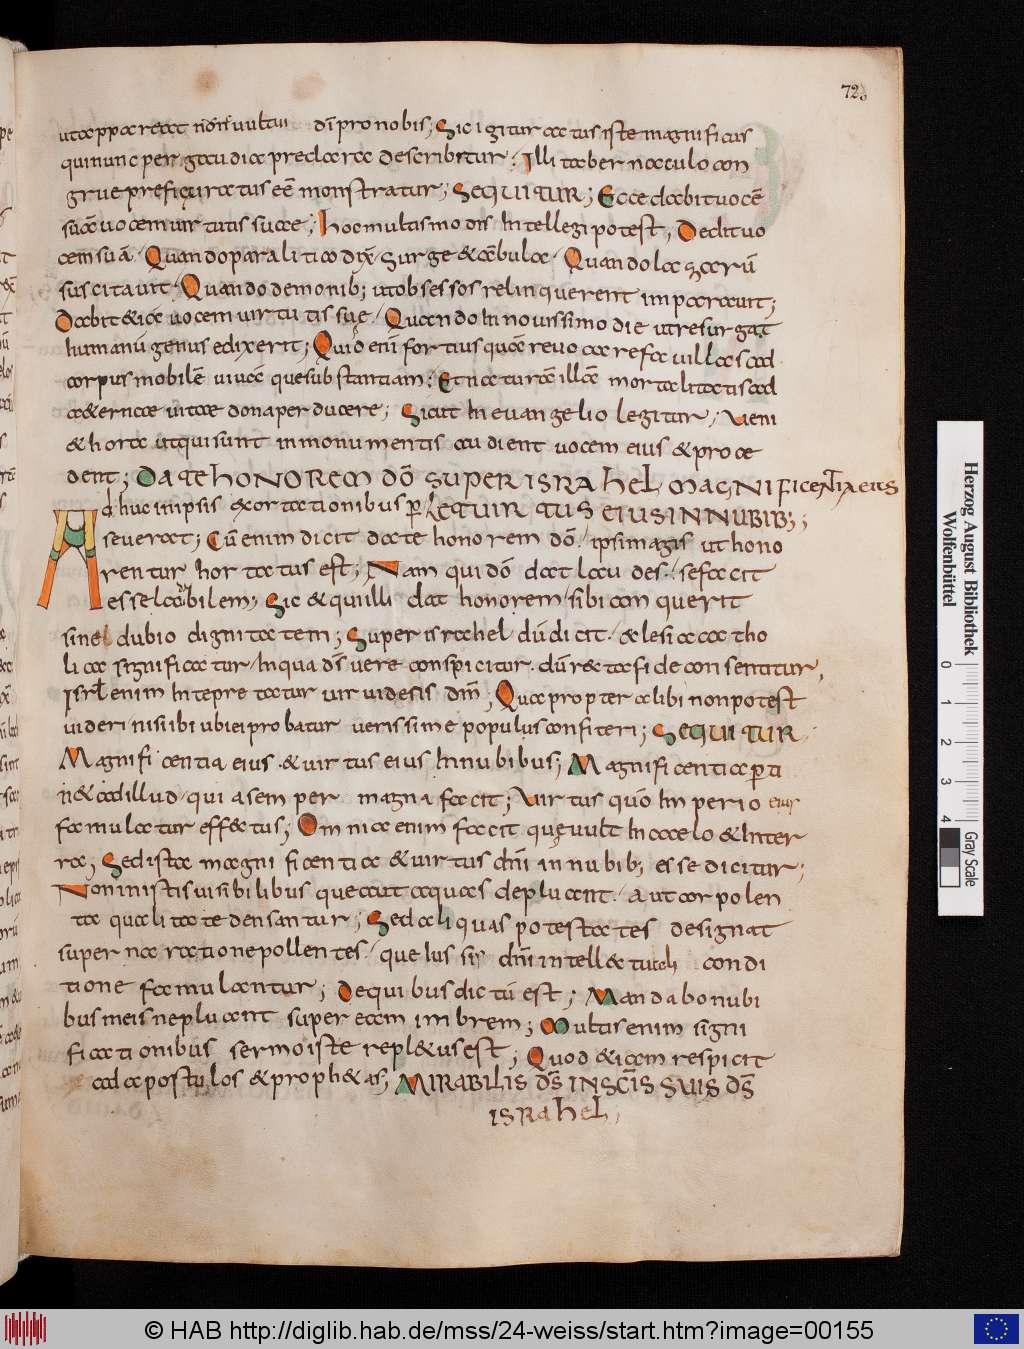 72
utappareat non uultui dñi pro nobis; Sic igitur actus iste magnificus
qui nunc per gaudia preclara describitur; Illi tabernaculo con
grue prefiguratus eẽ monstratur; SEQUITUR; Ecce dabit uocẽ
suã uocem uirtutis suae; Hoc multis modis intellegi potest, Dedit uo
cem suã. Quando paralitico dix̃ surge & ãbula. Quando lazarũ
suscitauit. Quando demonib; ut obsessos relinquerent imparauit;
Dabit & ia uocem uirtutis sue. Quando in nouissimo die ut resurgat
humanũ genus edixerit; Quid enĩ fortius quã reuoca refauillas ad
corpus mobilẽ uiuã que substantiam; Et naturã illã mortalitatis ad
a&ernae uitae dona perducere; Sicut in euangelio legitur; Veni
& hora ut qui sunt in monumentis audient uocem eius & proce
dent; DATE HONOREM DÕ SUPER ISRAHEL MAGNIFICENTIA EIUS
Adhuc in ipsis exortationibus p LEQUIR TUS EIUS IN NUBIB;;
seuerat; Cũ enim dicit date honorem dõ. ipsi magis ut hono
rentur hortatus est; Nam qui dõ dat laudes. se facit
esse laudabilem; Sic & qui illi dat honorem sibi conquerit
sine dubio dignitatem; Super israhel dũ dicit. & lesia catho
lica significatur in qua dñs uere conspicitur. dũ recta fide consentitur,
Isrl enim interpretatur uir uidens dm̃; Quapropter alibi non potest
uideri nisi ibi ubi ei probatur uerissime populus confiteri; SEQUITUR
Magnificentia eius. & uirtus eius in nubibus; Magnificentia p̃ti
n& ad illud. qui a semper magna facit; Virtus quõ imperio eius
famulatur eff&tus; Omnia enim facit que uult in caelo & in ter
ra; Sed ista magnificentia & uirtus dñi in nubib; esse dicitur;
Non in istis uisibilibus que aut aquas depluant. aut corpolen
ta qualitate densantur; Sed aliquas potestates designat
super narratione pollentes. que ius sis dñi intell&tuali condi
tione famulantur; De quibus dictũ est; Mandabo nubi
bus meis ne pluant super eam imbrem; Multis enim signi
ficationibus sermo iste repl&us est; Quod & iam respicit
ad apostulos & proph&as; MIRABILIS DS̃ IN SCĨS SUIS DS̃
ISRAHEL;
Herzog August Bibliothek
Wolfenbüttel
0 1 2 3 4
Gray Scale
© HAB http://diglib.hab.de/mss/24-weiss/start.htm?image=00155